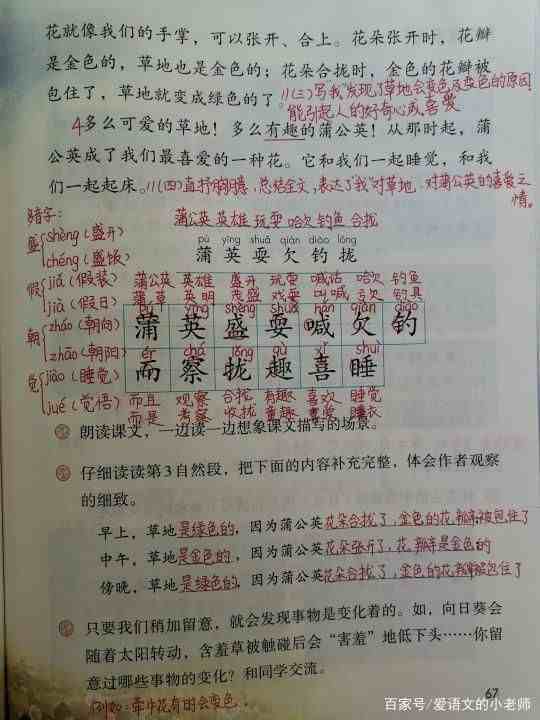 花就像我们的手掌，可以张开、合上。花朵张开时，花瓣
是金色的，草地也是金色的；花朵合拢时，金色的花瓣被
包住了，草地就变成绿色的了。//(三)写"我"发现了草地会变色及变色的原因
能引起人的好奇心或喜爱
4多么可爱的草地！多么有趣的蒲公英！从那时起，蒲
公英成了我们最喜爱的一种花。它和我们一起睡觉，和我
们一起起床。//(四)直抒胸臆，总结全文，表达了"我"对草地、对蒲公英的喜爱之
情。
蒲公英 英雄 玩耍 哈欠 钓鱼 合拢
盛 shèng(盛开)
chéng(盛饭)
pú yīng shuǎ qiàn diào lǒng
蒲 英 耍 欠 钓 拢
假 jiǎ(假装)
jià(假日)
蒲公英 英雄 盛开 玩耍 喊话 哈欠 钓鱼
蒲草 英明 茂盛 戏耍 叫喊 亏欠 钓具
pú yīng shèng shuǎ hǎn qiàn diào
朝 cháo(朝向)
zhāo(朝阳)
蒲 英 盛 耍 喊 欠 钓
ér chá lǒng qù xǐ shuì
而 察 拢 趣 喜 睡
觉 jiào(睡觉)
jué(觉悟)
而且 观察 合拢 有趣 喜欢 睡觉
而是 考察 收拢 童趣 喜爱 睡衣
朗读课文，一边读一边想象课文描写的场景。
仔细读读第3自然段，把下面的内容补充完整，体会作者观察
的细致。
早上，草地是绿色的，因为蒲公英花朵合拢了，金色的花瓣被包住了
中午，草地是金色的，因为蒲公英花朵张开了，花瓣是金色的
傍晚，草地是绿色的，因为蒲公英花朵合拢了，金色的花瓣被包住了
只要我们稍加留意，就会发现事物是变化着的。如，向日葵会
随着太阳转动，含羞草被触碰后会"害羞"地低下头……你留
意过哪些事物的变化？和同学交流。
67
例如：牵牛花有时会变色.
百家号/爱语文的小老师